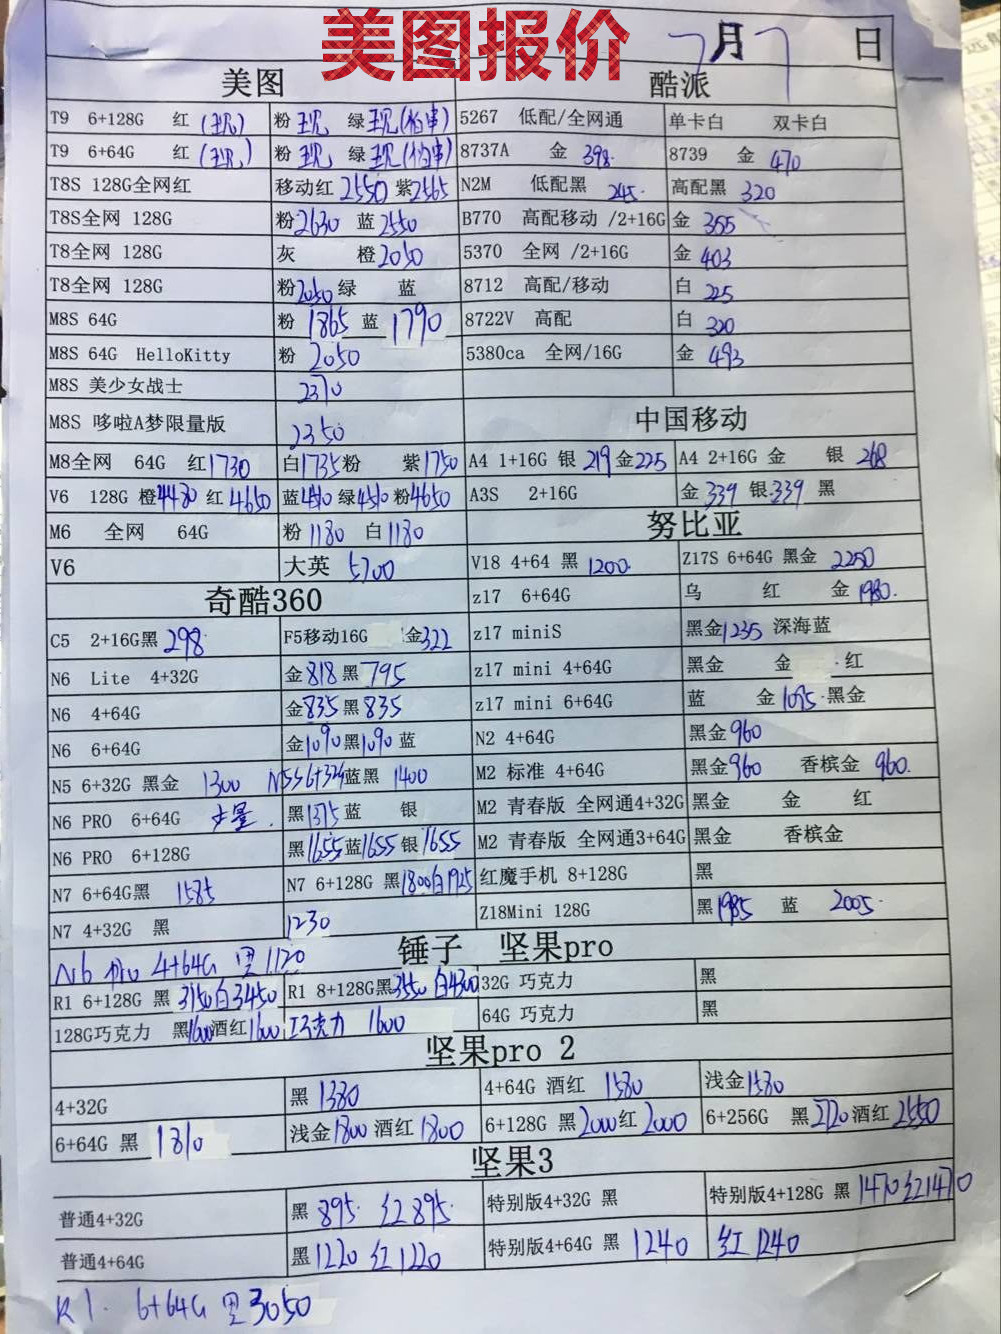 美图报价
7月7日
美图 酷派
T9 6+128G 红(现) 粉 现 绿 现 5267 低配/全网通 单卡白 双卡白
T9 6+64G 红(现) 粉 现 绿 现 8737A 金 398 8739 金 470
T8S 128G全网红 移动红 2550 紫2565 N2M 低配黑 245 高配黑 320
T8S全网 128G 粉2630 蓝2550 B770 高配移动 /2+16G 金 355
T8全网 128G 灰 橙2050 5370 全网 /2+16G 金 403
T8全网 128G 粉2050 绿 蓝 8712 高配/移动 白 225
M8S 64G 粉 1865 蓝 1790 8722V 高配 白 320
M8S 64G HelloKitty 粉 2050 5380ca 全网/16G 金 493
M8S 美少女战士 2370
M8S 哆啦A梦限量版 2350 中国移动
M8全网 64G 红1730 白1735 粉 紫1750 A4 1+16G 银 219 金225 A4 2+16G 金 银 268
V6 128G 橙4480 红 4650 蓝 绿 粉4650 A3S 2+16G 金 339 银 339 黑
M6 全网 64G 粉 1180 白 1180 努比亚
V6 大英 5700 V18 4+64 黑 1200 Z17S 6+64G 黑金 2250
奇酷360 z17 6+64G 乌 红 金 1980
C5 2+16G黑 298 F5移动16G 金322 z17 miniS 黑金1235 深海蓝
N6 Lite 4+32G 金818 黑 795 z17 mini 4+64G 黑金 金 红
N6 4+64G 金835 黑 835 z17 mini 6+64G 蓝 金 1075 黑金
N6 6+64G 金1090 黑1090 蓝 N2 4+64G 黑金 960
N5 6+32G 黑金 1300 N5S 6+32G 蓝黑 1400 M2 标准 4+64G 黑金960 香槟金 960
N6 PRO 6+64G 少量 黑1375 蓝 银 M2 青春版 全网通4+32G 黑金 金 红
N6 PRO 6+128G 黑1655 蓝1655 银1655 M2 青春版 全网通3+64G 黑金 香槟金
N7 6+64G黑 1585 N7 6+128G 黑1800 白1925 红魔手机 8+128G 黑
N7 4+32G 黑 1230 Z18Mini 128G 黑1985 蓝 2005
N6 pro 4+64G 黑1120 锤子 坚果pro
R1 6+128G 黑 3150 白3450 R1 8+128G黑3550 白4300 32G 巧克力 黑
128G巧克力 黑1600 酒红1600 巧克力 1600 64G 巧克力 黑
坚果pro 2
4+32G 黑 1380 4+64G 酒红 1580 浅金1580
6+64G 黑 1810 浅金1800 酒红 1800 6+128G 黑2000 红 2000 6+256G 黑2720 酒红 2550
坚果3
普通4+32G 黑 895 红 895 特别版4+32G 黑 特别版4+128G 黑 1470 红1470
普通4+64G 黑1220 红1220 特别版4+64G 黑 1240 红 1240
R1 6+64G 黑3050